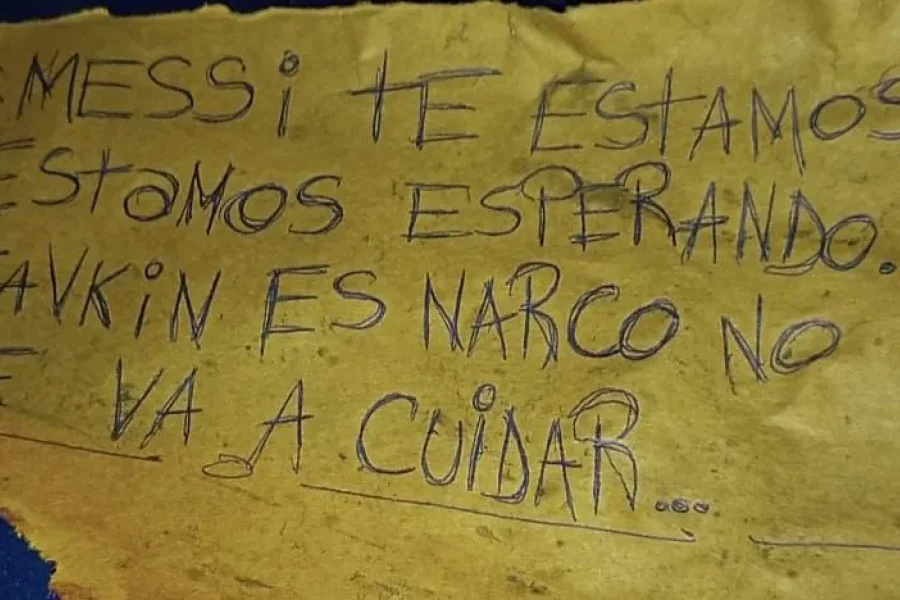 MESSi tE EStAMOS
EStaMOS ESPERANDO.
AVKiN ES NARCO NO
VA A CUiDAR...